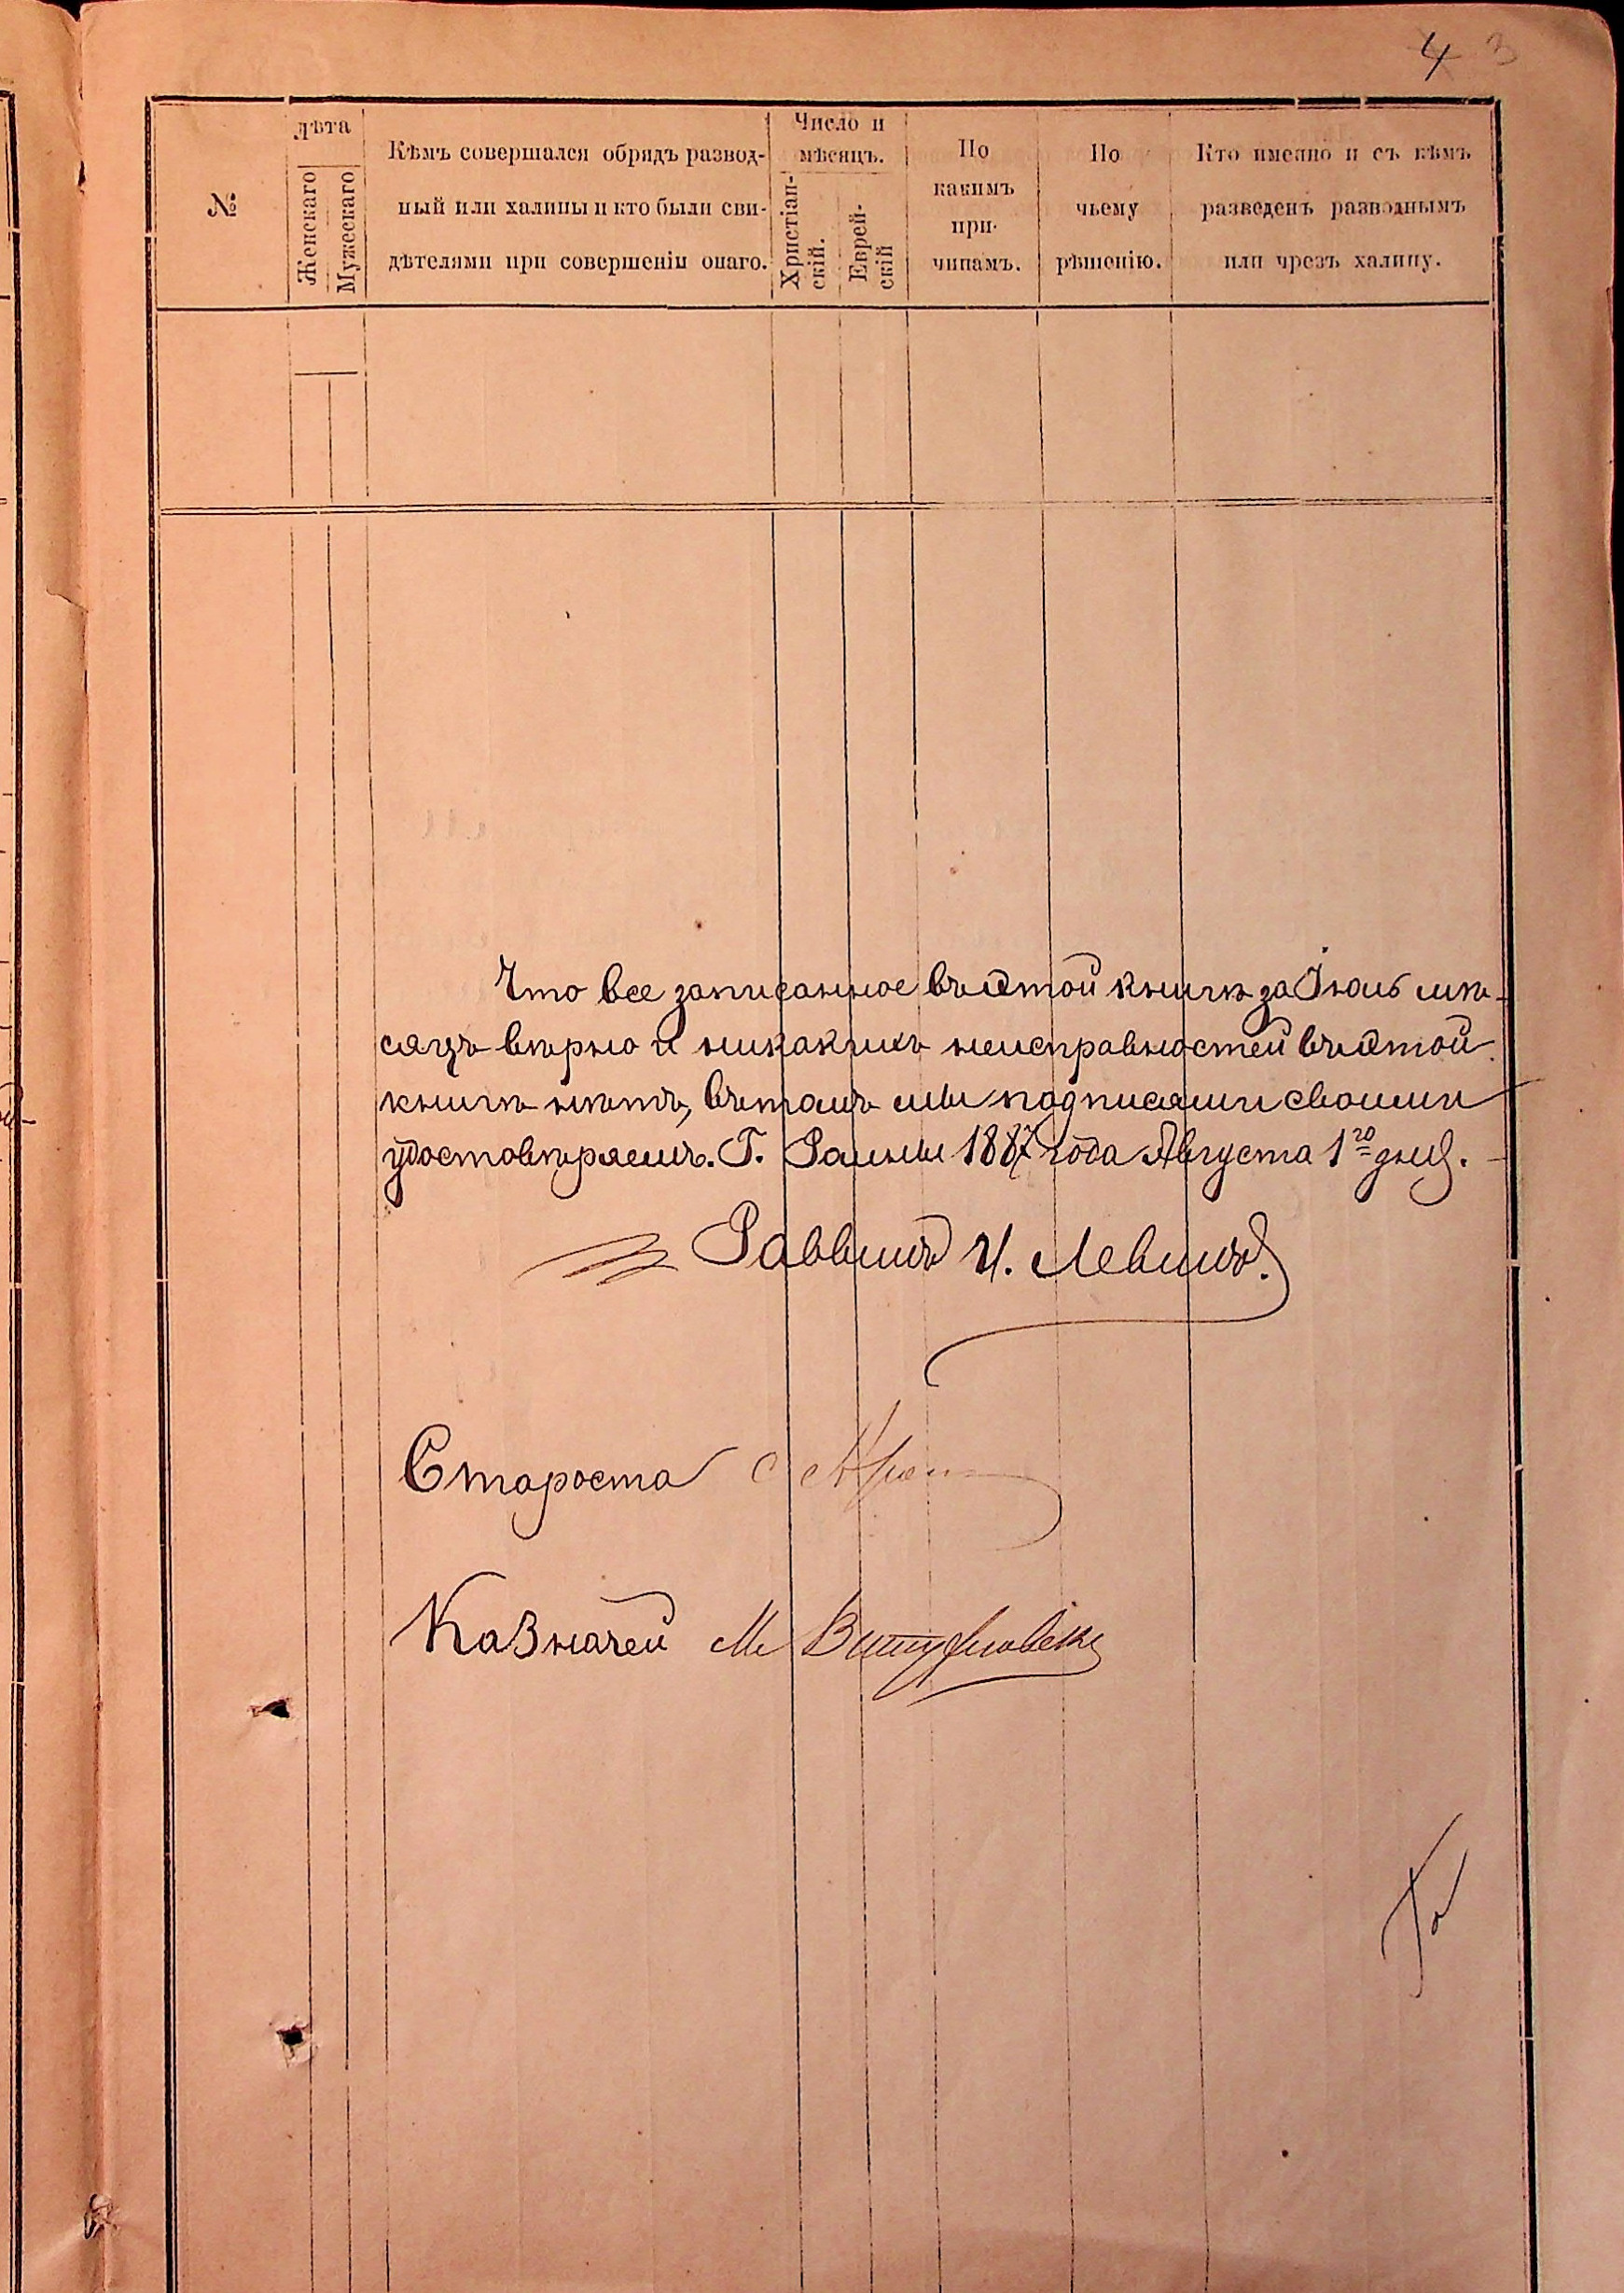 4 3
№
лѣта
Женскаго
Мужескаго
Кѣмъ совершался обрядъ развод-
ный или халицы и кто были сви-
дѣтелями при совершеніи онаго.
Число и
мѣсяцъ.
Христіан-
скій.
Еврей-
скій
По
какимъ
при-
чинамъ.
По
чьему
рѣшенію.
Кто именно и съ кѣмъ
разведенъ разводнымъ
или чрезъ халицу.
Что все записанное въ этой книгѣ за Іюль мѣ-
сяцъ вѣрно и никакихъ неисправностей въ этой
книгѣ нѣтъ, въ томъ мы подписями своими
удостовѣряемъ. Г. Ромны 1887 года Августа 1го дня.
Раввинъ И. Левинъ.
Староста С
Казначей М